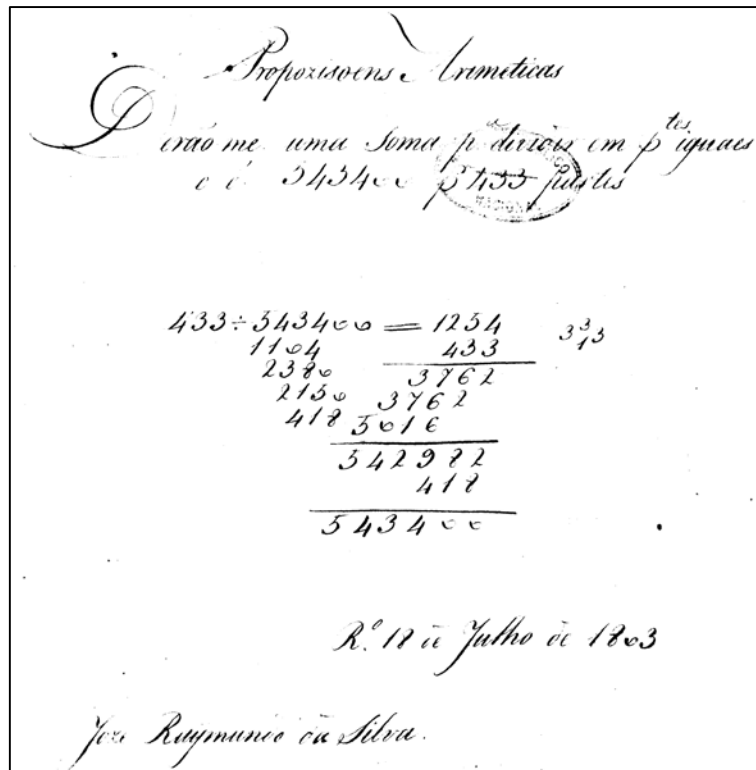 Propozisoens Arimeticas
Derão me uma Soma pª dividir em p.tes iguaes
e é 543400 pª 433 partes
433÷543400 = 1254 3 3 3
1104 433 1
2380 3762
2150 3762
418 5016
542982
418
543400
R.º 18 de Julho de 1803
Joze Raymundo da Silva.